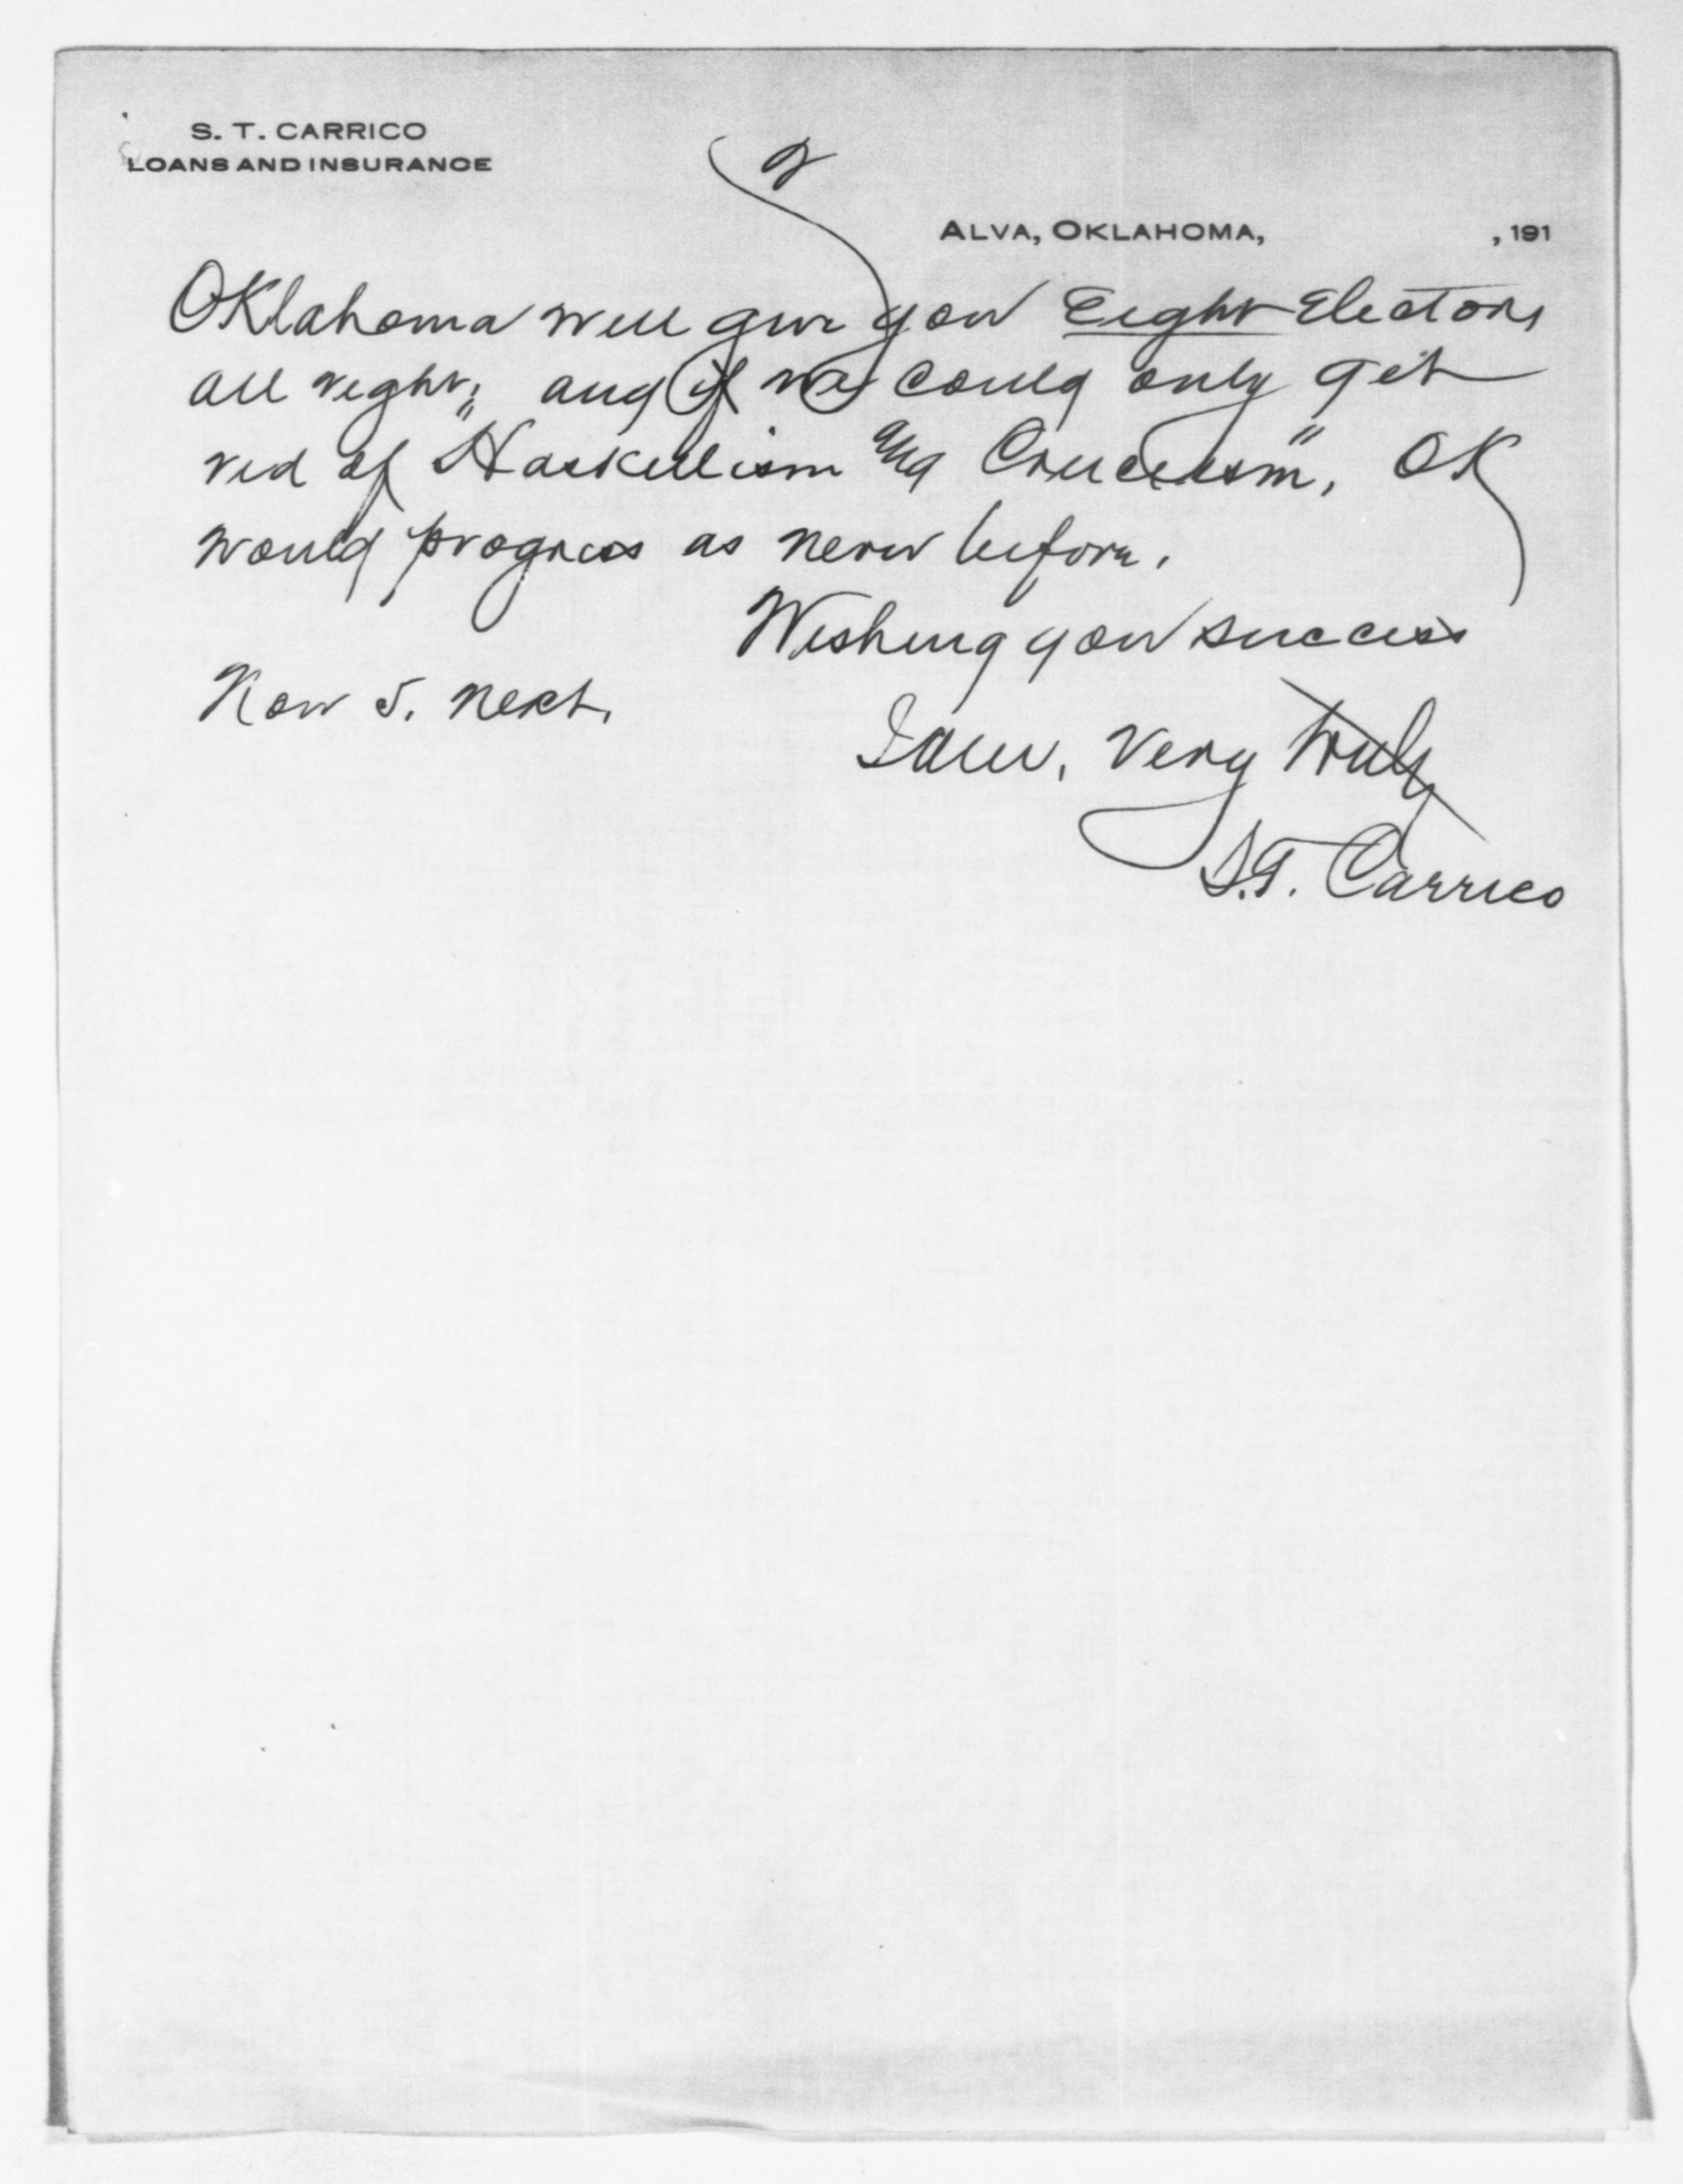 S. T. CARRICO
LOANS AND INSURANCE
2
ALVA, OKLAHOMA, , 191
Oklahoma will give you Eight Electors
all right; and if we could only get
rid of "Haskellism and Cruceism", OK
would progress as never before.
Wishing you success
Nov 5. next.
I am, Very truly
S.T. Carrico